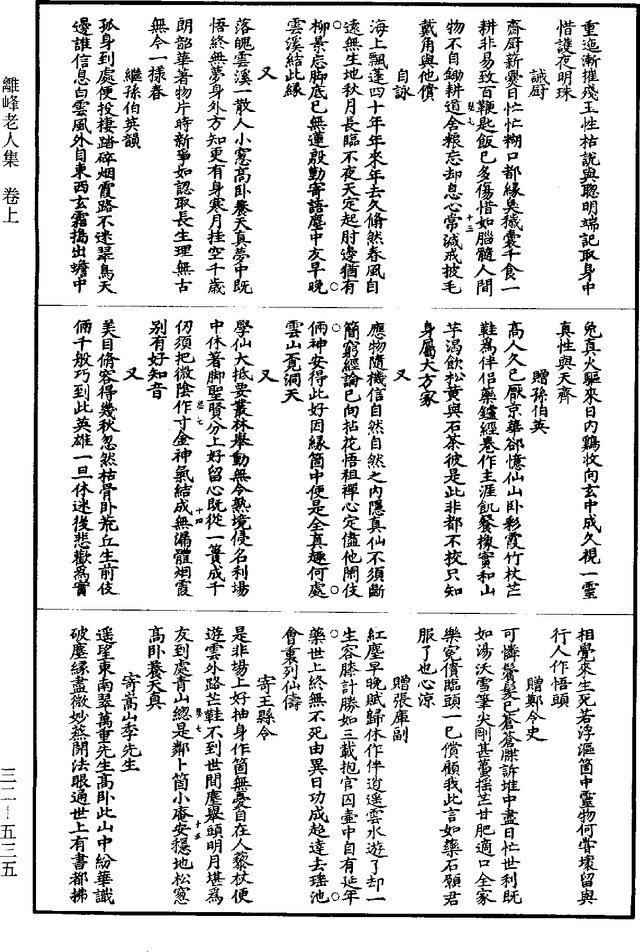 重迤漸摧殘玉性枯說與聰明端記取身中
惜護夜明珠
誡厨
齋厨薪爨日忙忙糊口都緣臭穢囊千食一
耕非易致百鞭匙飯已多傷惜如腦髓人間
物不自鋤耕道舍粮忘却息心常減戒披毛
戴角與他償
自詠
海上飄蓬四十年年來年去久翛然春風自
遠無生地秋月長臨不夜天定起肘邊猶有
柳景忘脚底已無蓮殷勤寄語塵中友早晚
雲溪結此緣
又
落魄雲溪一散人小窻高卧養天真夢中既
悟終無夢身外方知更有身寒月挂空千歲
朗韶華著物片時新爭如認取長生理無古
無今一樣春
繼孫伯英韻
孤身到處便投棲踏碎烟霞路不迷翠鳥天
邊誰信息白雲風外自東西玄霜搗出蟾中
兔真火驅來日內鷄收向玄中成久視一靈
真性與天齊
贈孫伯英
高人久已厭京華郤憶仙山卧彩霞竹杖芒
鞋爲伴侣藥鑪經卷作生涯飢餐橡實和山
芋渴飲松黃與石茶彼是此非都不挍只知
身屬大方家
又
應物隨機信自然自然之內隱真仙不須斷
簡窮經論已向拈花悟祖禪心定儘他閙伎
倆神安得此好因緣箇中便是全真趣何處
雲山覓洞天
又
學仙大抵要叢林舉動無令熟境侵名利場
中休著脚聖賢分上好留心既從一簣成千
仞須把微陰作寸金神氣結成無漏體烟霞
别有好知音
又
美目脩容得幾秋忽然枯骨卧荒丘生前伎
倆千般巧到此英雄一旦休迷後悲歡爲實
相覺來生死若浮漚箇中靈物何嘗壞留與
行人作悟頭
贈鄭令史
可憐鬢髮已蒼蒼牒訴堆中盡日忙世利既
如湯沃雪筆尖剛甚蠆摇芒甘肥適口全家
樂寃債臨頭一已償顧我此言如藥石願君
服了也心涼
贈張庫副
紅塵早晚賦歸休作伴逍遥雲水遊了却一
生容膝計勝如三載抱官囚壷中自有延年
藥世上終無不死由異日功成超達去瑤池
會裏列仙儔
寄王縣令
是非場上好抽身作箇無憂自在人藜杖便
遊雲外路芒鞋不到世間塵舉頭明月堪爲
友到處青山總是鄰卜箇小庵安穩地松窻
高卧養天真
寄嵩山李先生
遥望東南翠萬重先生高卧此山中紛華識
破塵緣盡微妙叅開法眼通世上有書都拂
離峰老人集　卷上
三二—五三五